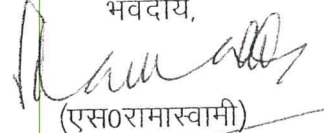 भवदीय,
(एस0रामास्वामी)